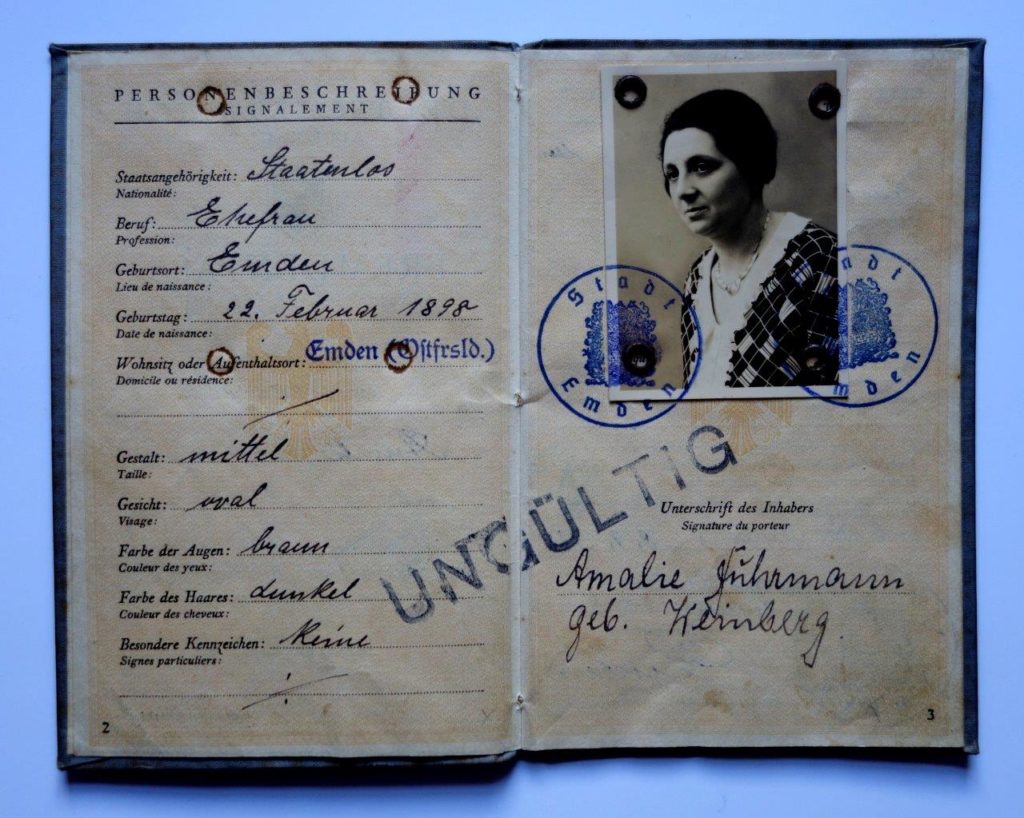 PERSONENBESCHREIBUNG
SIGNALEMENT
Staatsangehörigkeit: Staatenlos
Nationalité:
Beruf: Ehefrau
Profession:
Geburtsort: Emden
Lieu de naissance:
Geburtstag: 22. Februar 1898
Date de naissance:
Wohnsitz oder Aufenthaltsort: Emden (Ostfrsld.)
Domicile ou résidence:
Gestalt: mittel
Taille:
Gesicht: oval
Visage:
Farbe der Augen: braun
Couleur des yeux:
Farbe des Haares: dunkel
Couleur des cheveux:
Besondere Kennzeichen: keine
Signes particuliers:
2
Stadt
Emden
Stadt
Emden
UNGÜLTIG
Unterschrift des Inhabers
Signature du porteur
Amalie Führmann
geb. Weinberg.
3